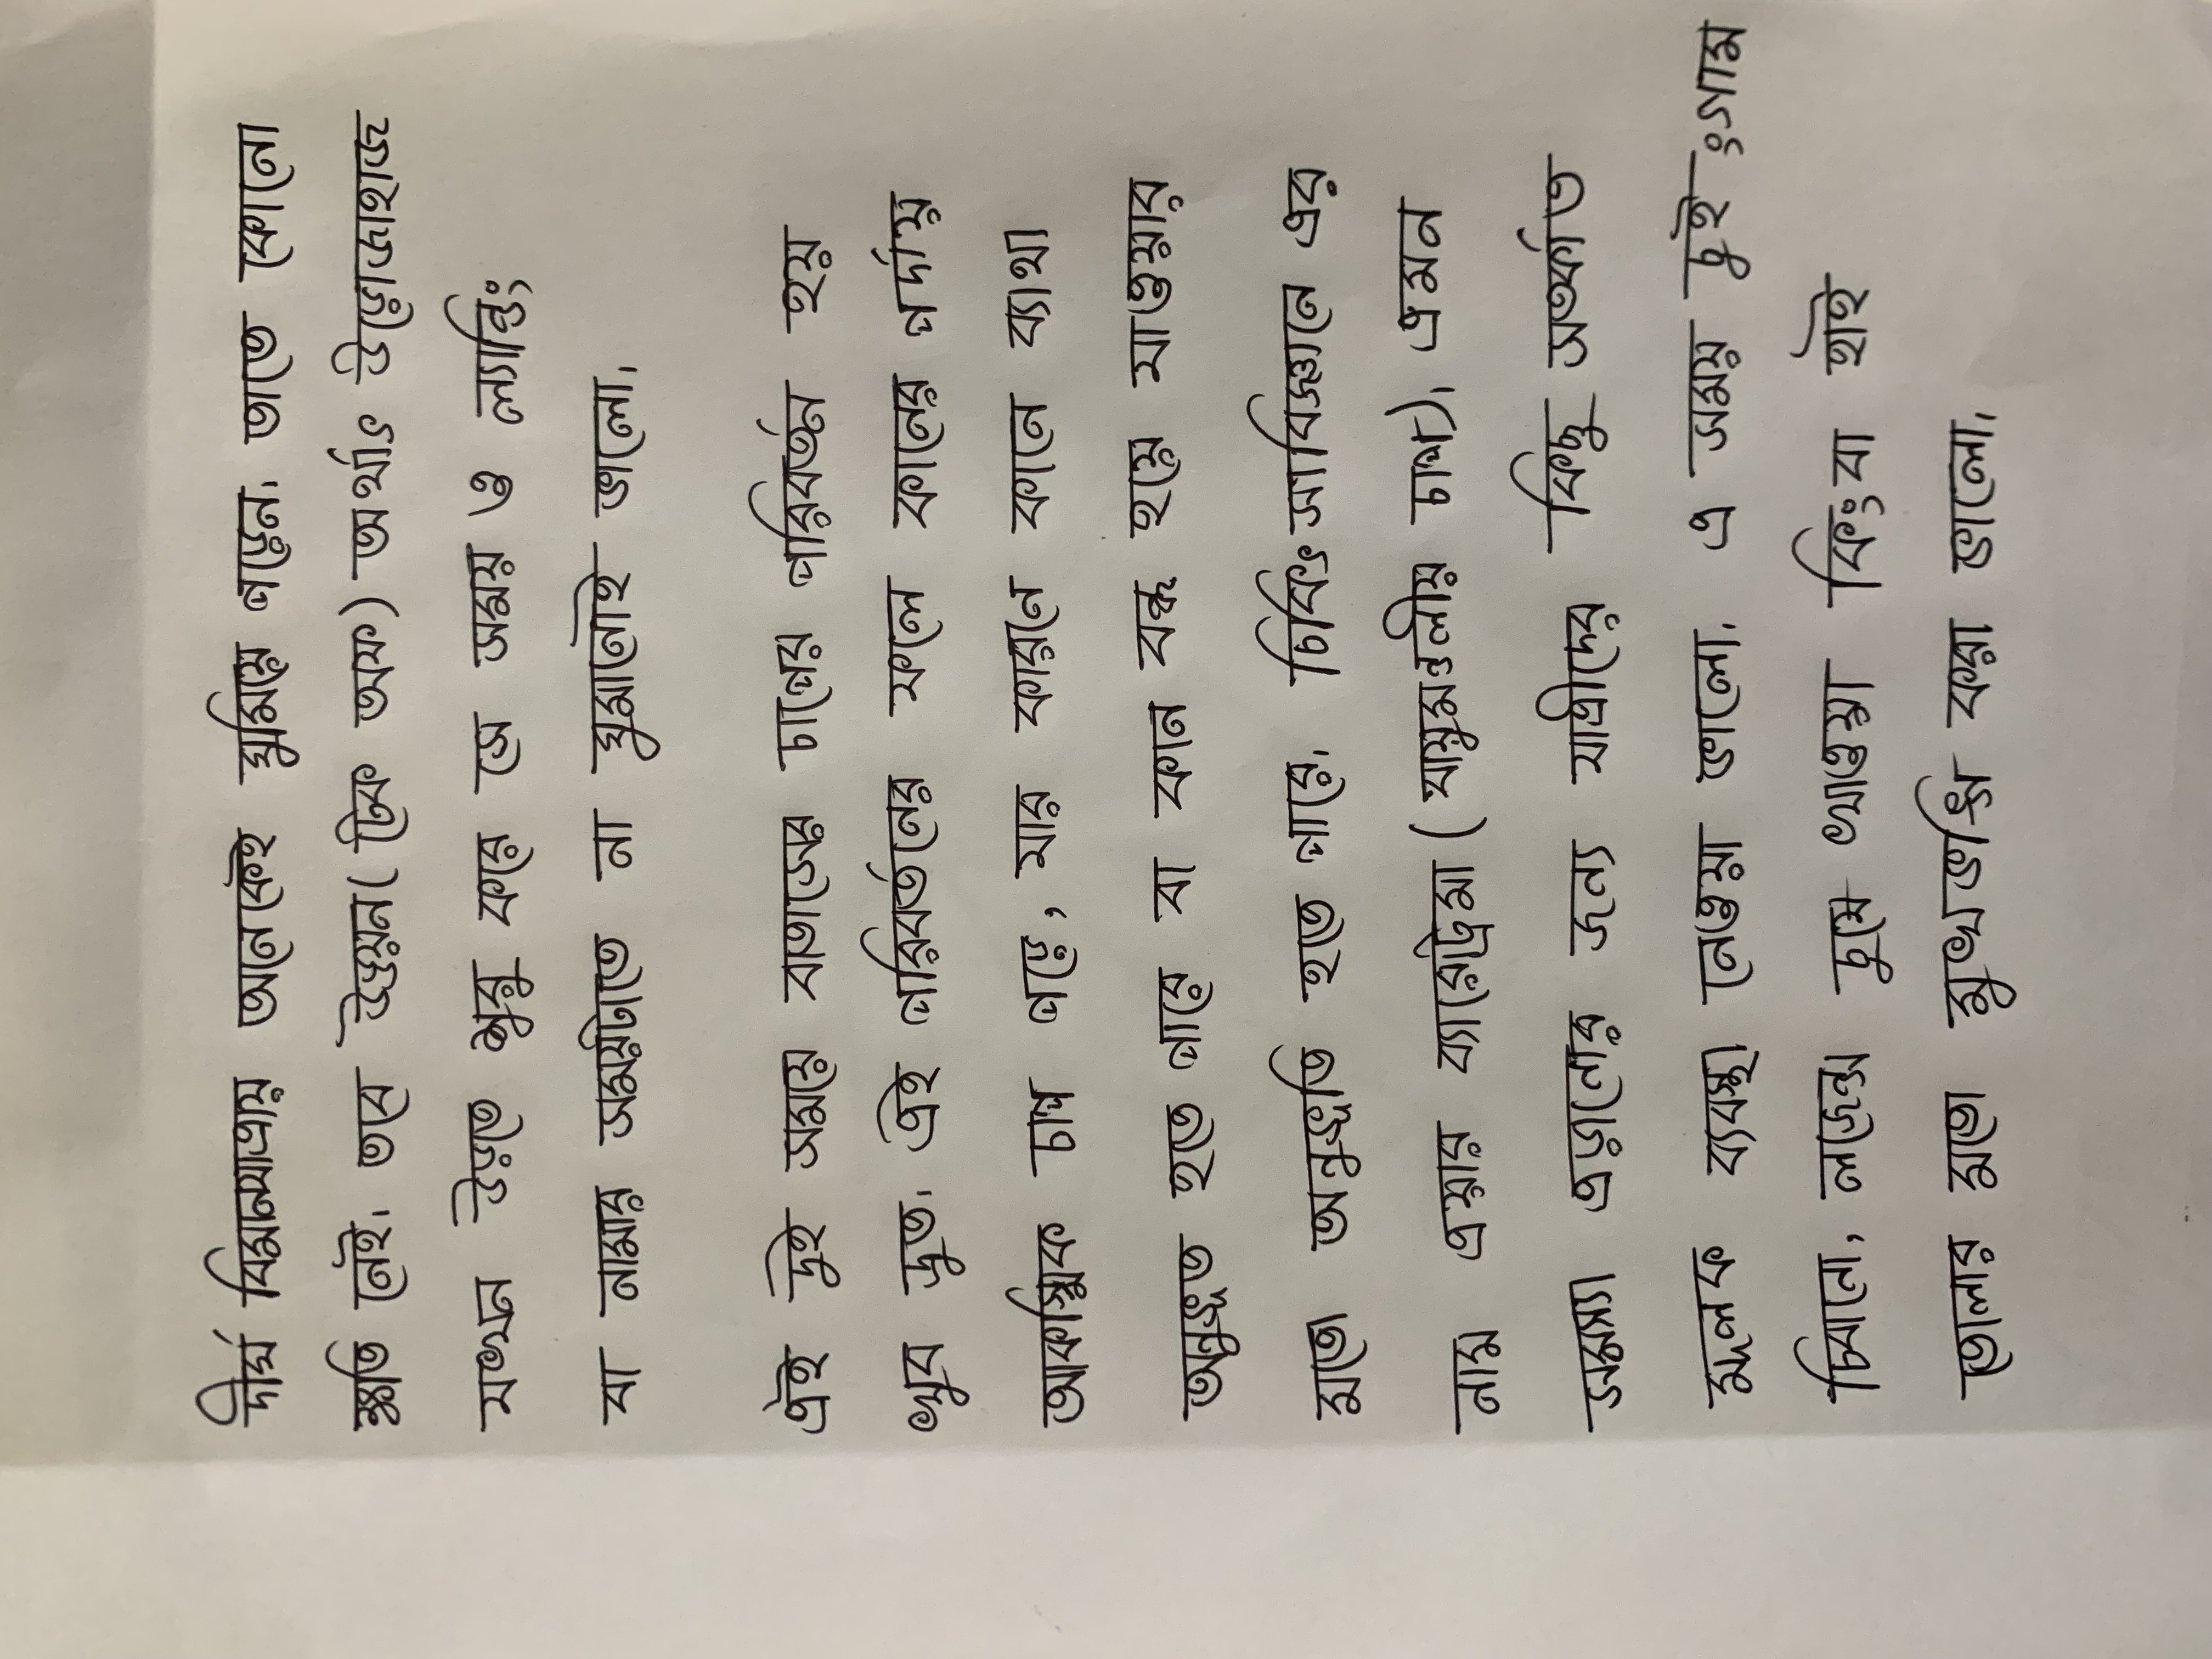 দীর্ঘ বিমানযাত্রায় অনেকেই ঘুমিয়ে পড়েন। তাতে কোনো
ক্ষতি নেই। তবে উড্ডয়ন (টেক অফ) অর্থাৎ উড়োজাহাজ
যখন উড়তে শুরু করে সে সময় ও ল্যান্ডিং
বা নামার সময়টাতে না ঘুমানোই ভালো।
এই দুই সময়ে বাতাসের চাপের পরিবর্তন হয়
খুব দ্রুত। এই পরিবর্তনের ফলে কানের পর্দায়
আকস্মিক চাপ পড়ে, যার কারনে কানে ব্যাথা
অনুভূত হতে পারে বা কান বন্ধ হয়ে যাওয়ার
মতো অনুভূতি হতে পারে। চিকিৎসাবিজ্ঞানে এর
নাম এয়ার ব্যারোট্রমা (বায়ুমণ্ডলীয় চাপ)। এমন
সমস্যা এড়ানোর জন্য যাত্রীদের কিছু সতর্কাত
মূলক ব্যবস্থা নেওয়া ভালো। এ সময় চুইংগাম
চিবানো, লজেন্স চুষে খাওয়া কিংবা হাই
তোলার মতো মুখভঙ্গি করা ভালো।